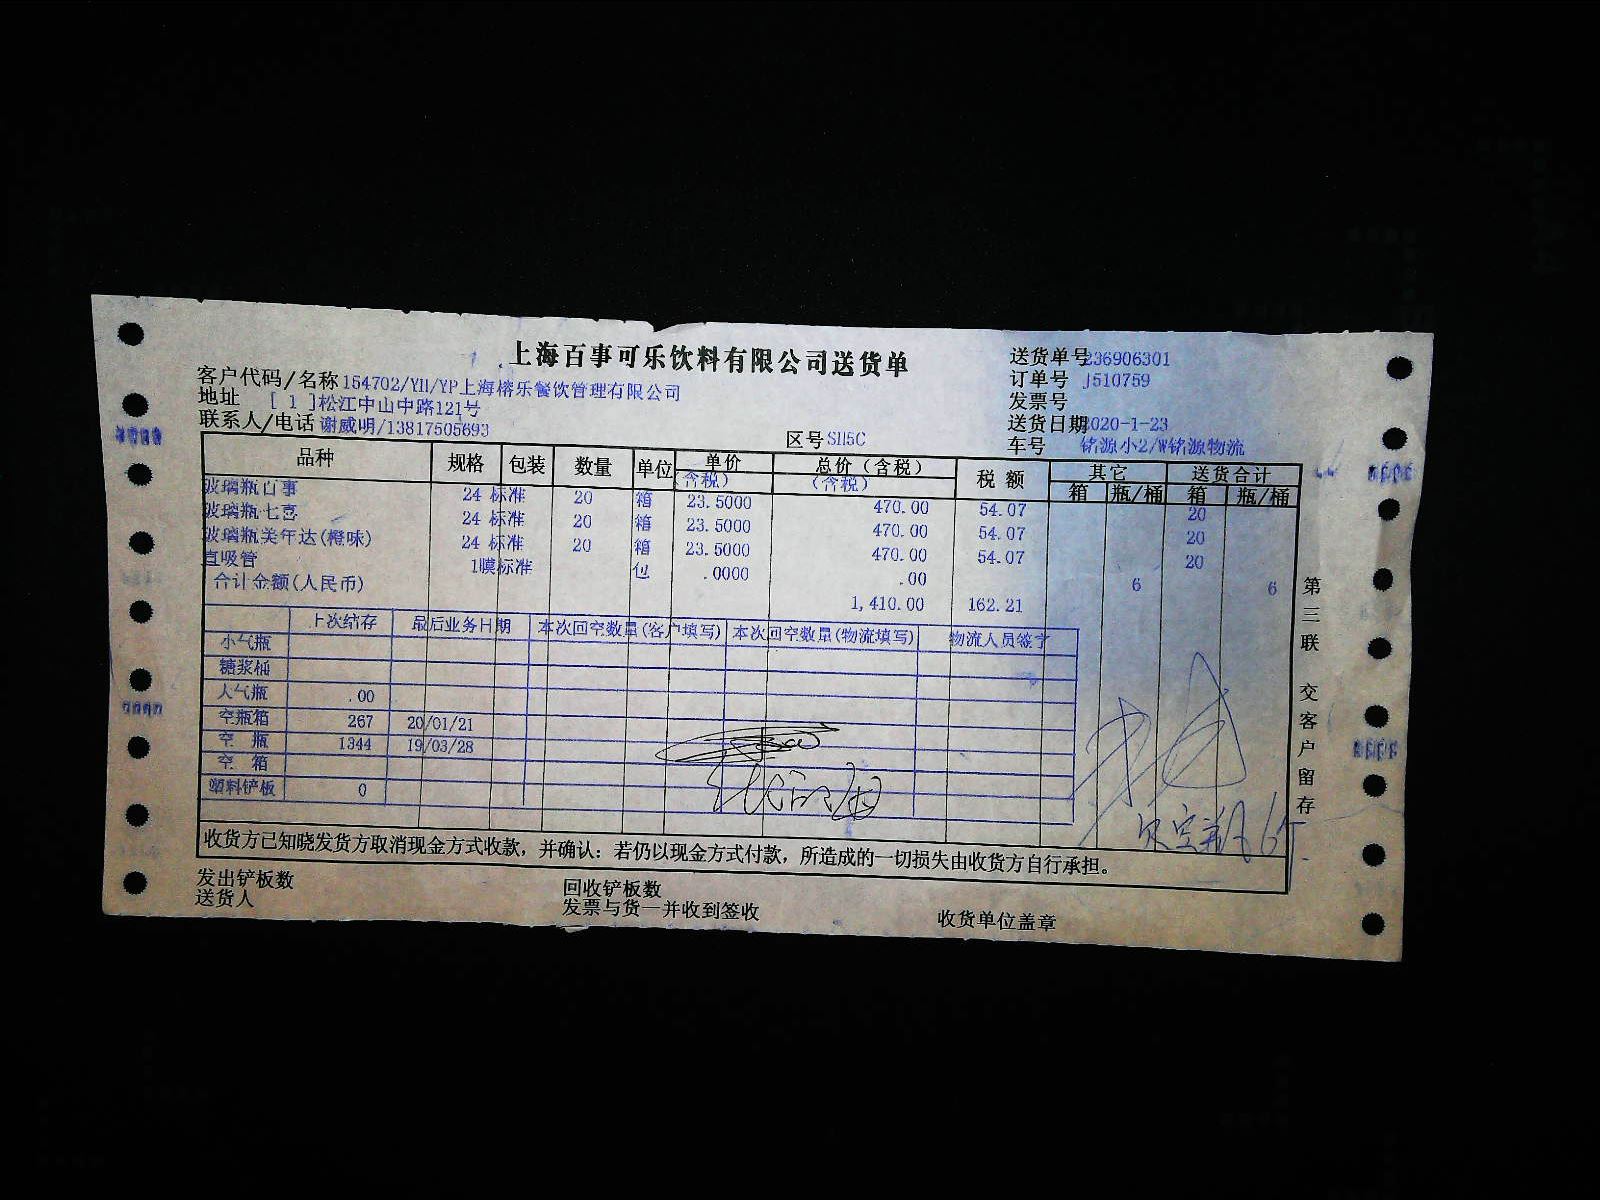 上海百事可乐饮料有限公司送货单
送货单号 236906301
客户代码/名称 154702/YH/YP上海榕乐餐饮管理有限公司
订单号 j510759
地址 [ 1 ]松江中山中路121号
发票号
联系人/电话 谢威明/13817505693
送货日期 2020-1-23
区号 SH5C
车号 铭源小2/W铭源物流
品种 规格 包装 数量 单位 单价 总价（含税） 税额 其它 送货合计
(含税) (含税) 箱 瓶/桶 箱 瓶/桶
玻璃瓶百事 24 标准 20 箱 23.5000 470.00 54.07 20
玻璃瓶七喜 24 标准 20 箱 23.5000 470.00 54.07 20
玻璃瓶美年达(橙味) 24 标准 20 箱 23.5000 470.00 54.07 20
直吸管 1膜标准 包 .0000 .00 6 6
合计金额(人民币) 1,410.00 162.21
上次结存 最后业务日期 本次回空数量(客户填写) 本次回空数量(物流填写) 物流人员签字
小气瓶
糖浆桶
大气瓶 .00
空瓶箱 267 20/01/21
空 瓶 1344 19/03/28
空 箱
塑料铲板 0
收货方已知晓发货方取消现金方式收款，并确认：若仍以现金方式付款，所造成的一切损失由收货方自行承担。
发出铲板数 回收铲板数
送货人 发票与货一并收到签收 收货单位盖章
第三联 交客户留存